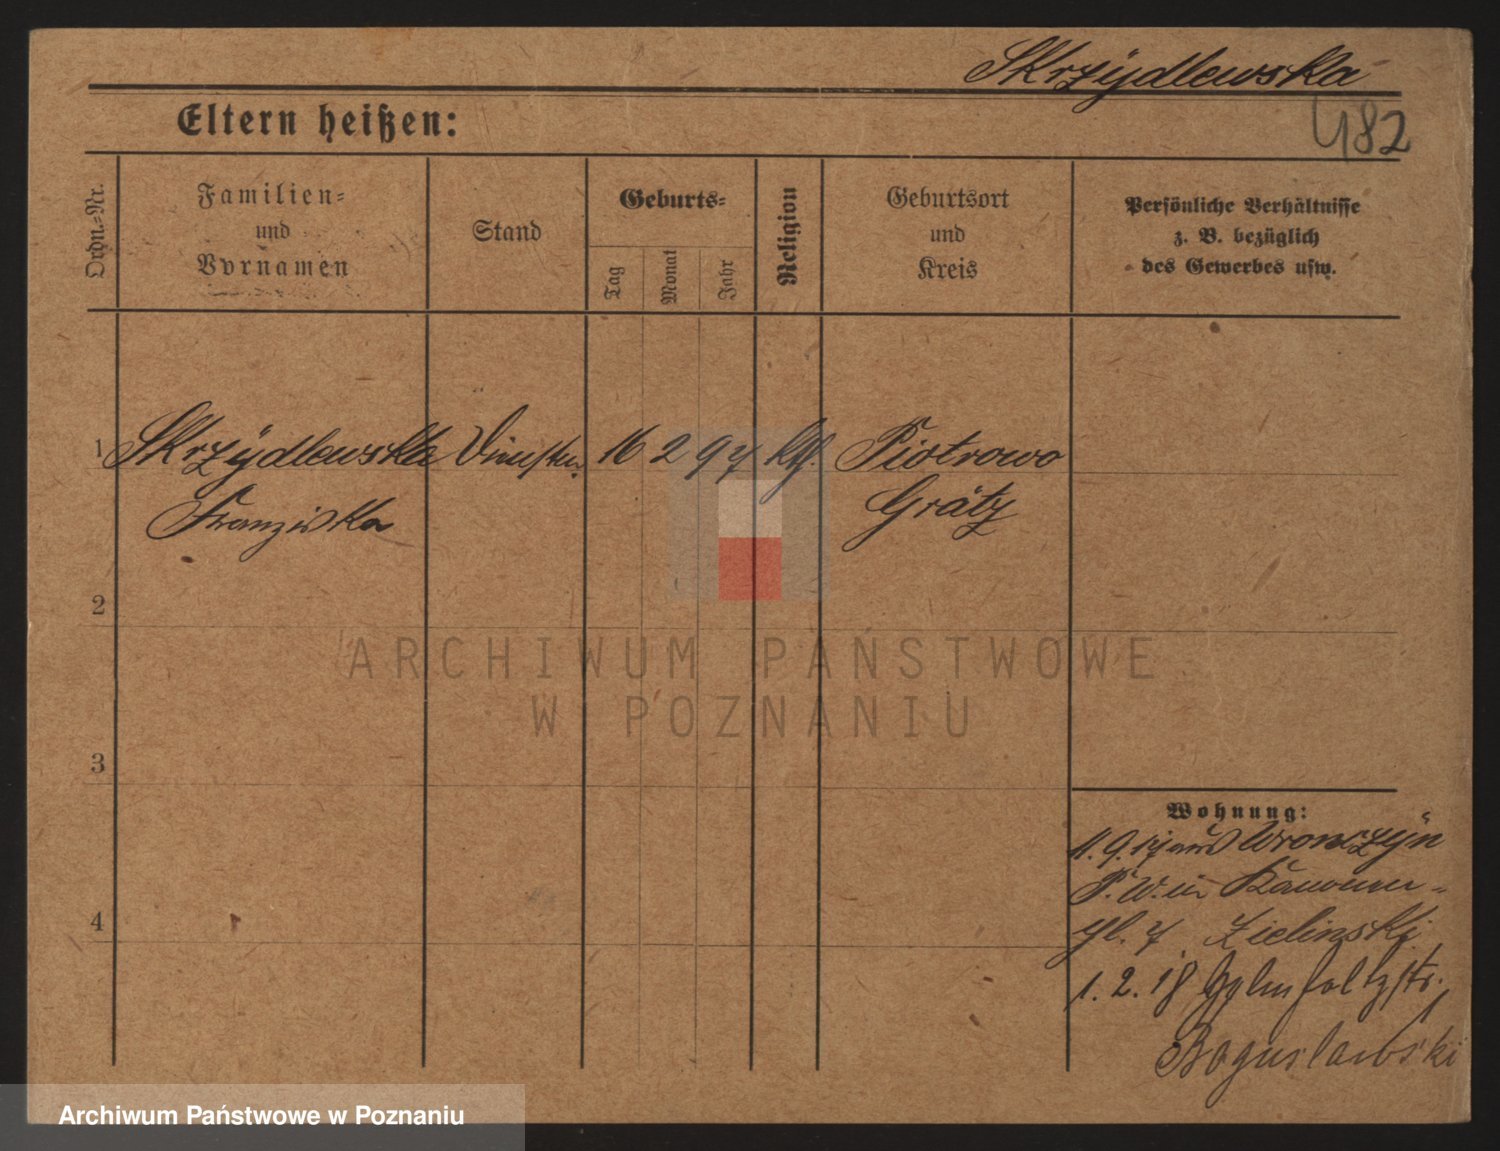 Skrzÿdlewska
482
Eltern heißen:
Ordn.-Nr.
Familien-
und
Vornamen
Stand
Geburts-
Tag
Monat
Jahr
Religion
Geburtsort
und
Kreis
Persönliche Verhältnisse
z. B. bezüglich
des Gewerbes usw.
1 Skrzÿdlewska 16 2 97 kth. Piotrowo
Franziska Grätz
2
3
4
Wohnung:
1. 9. 17 aus Wronczÿn
P. W. in
gl. 7 Zielinski
1. 2. 18
Boguslawski
ARCHIWUM PAŃSTWOWE
W POZNANIU
Archiwum Państwowe w Poznaniu